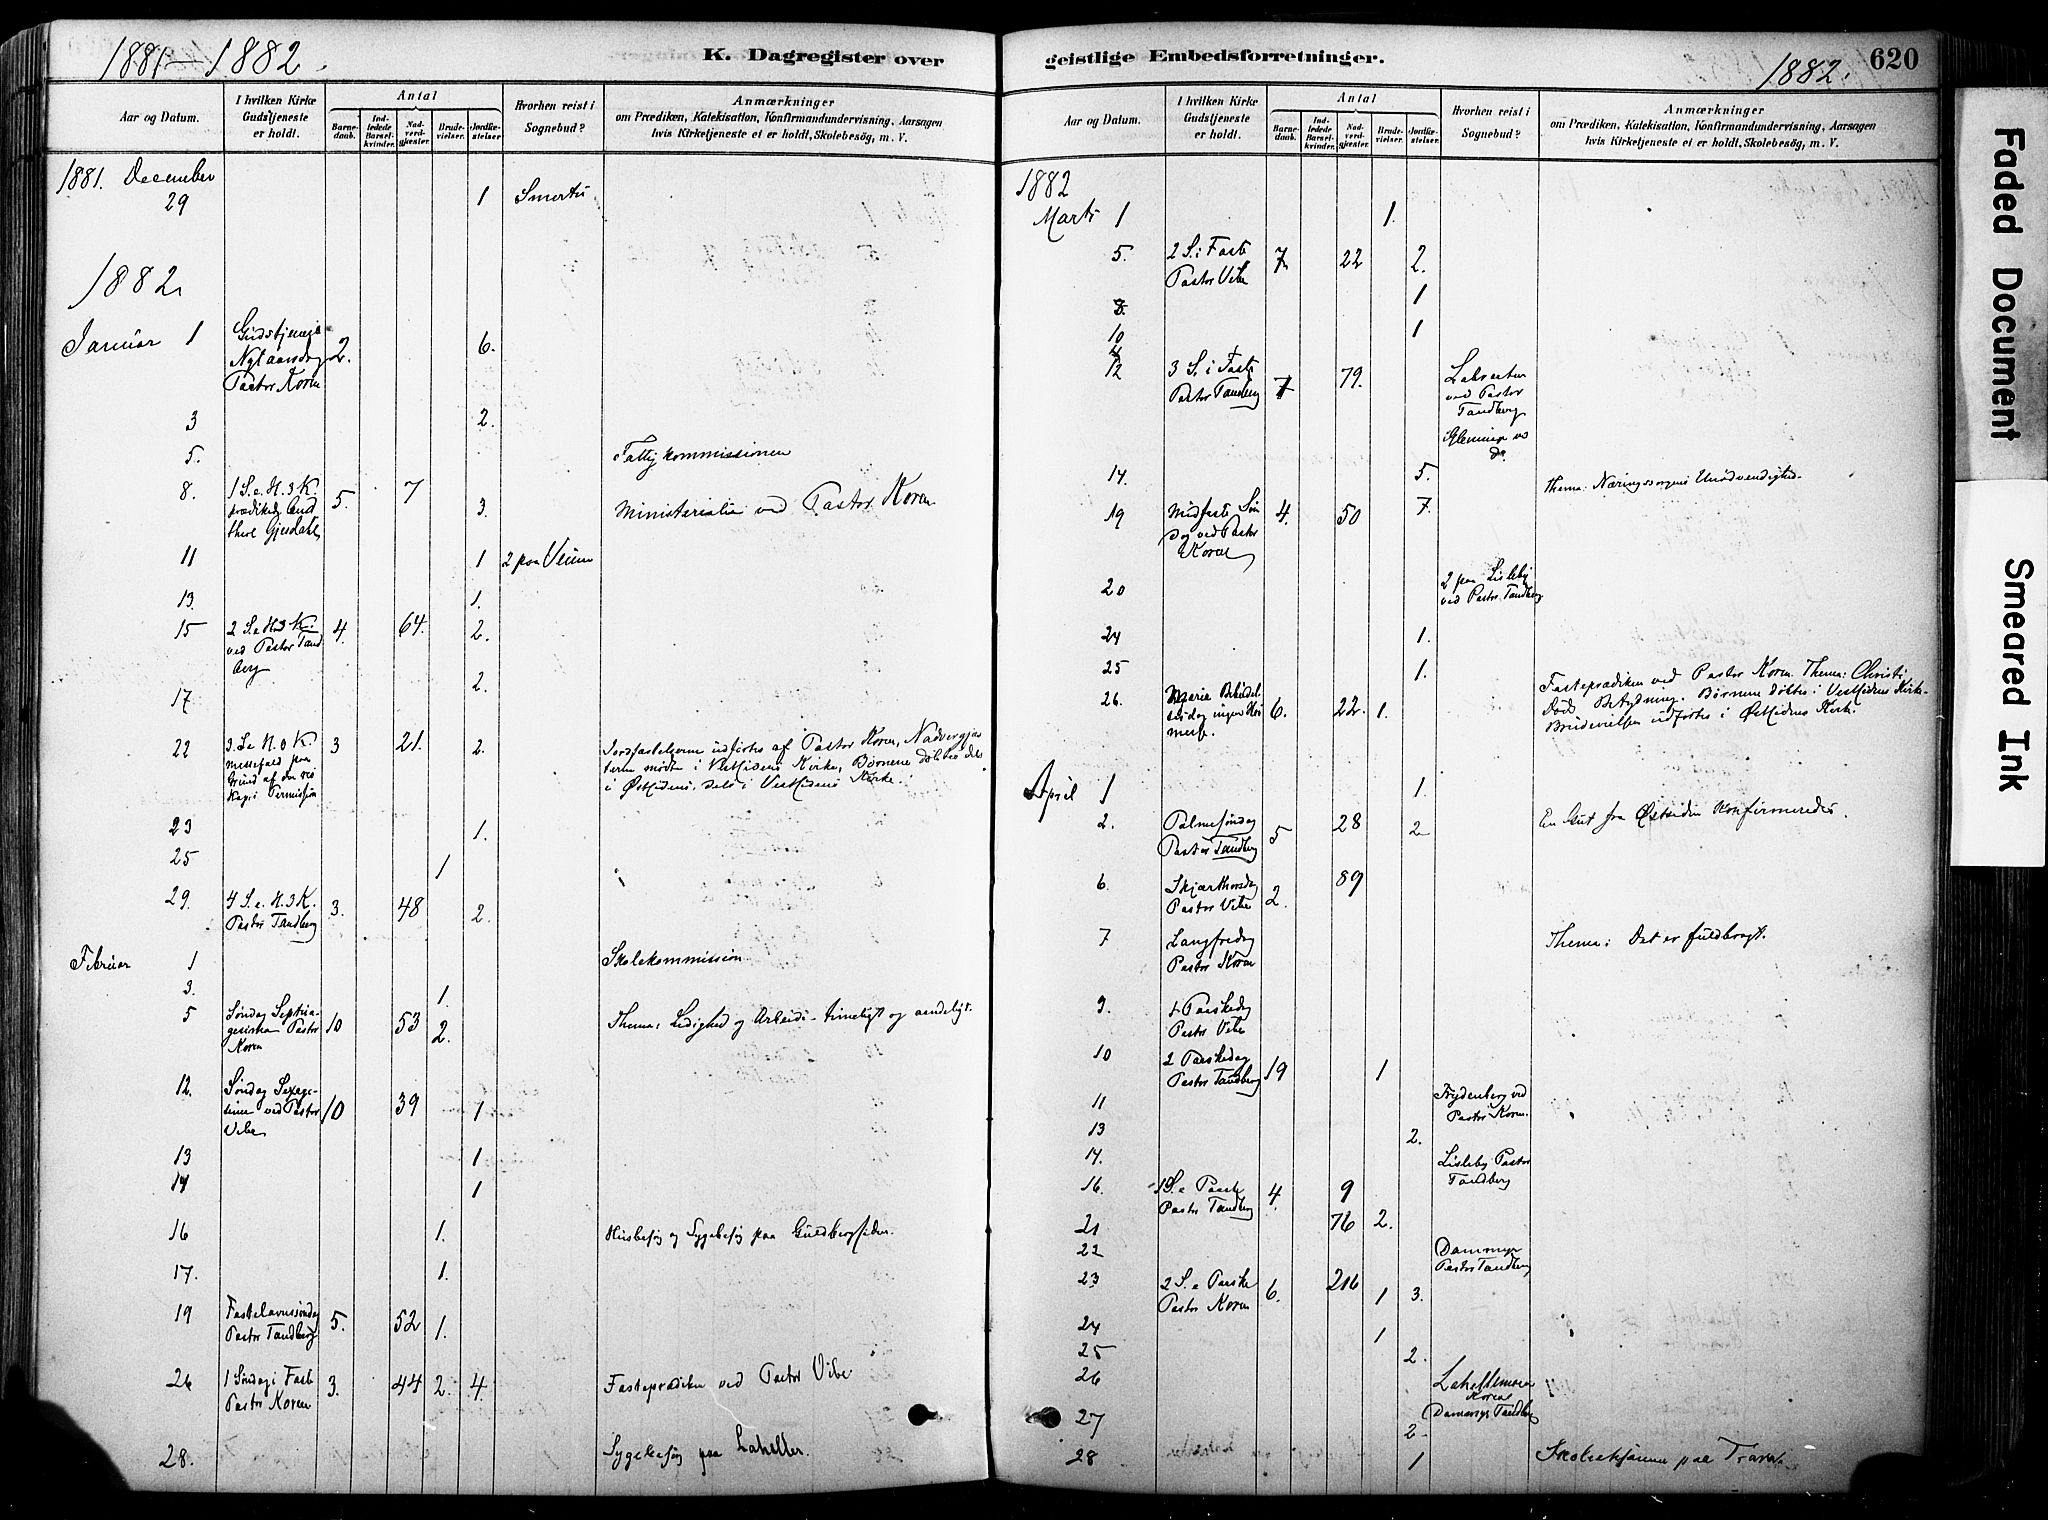 1881 – 1882.
K. Dagregister over
Aar og Datum.
I hvilken Kirke Gudstjeneste er holdt.
Antal
Barnedaab.
Indledede Barselkvinder.
Nadverdgjæster.
Brudevielser.
Jordfæstelser.
Hvorhen reist i Sognebud?
Anmærkninger
om Prædiken, Katekisation, Konfirmandundervisning, Aarsagen
hvis Kirketjeneste ei er holdt, Skolebesøg, m. V.
1881. December
29 1
1882.
Januar 1 2. 6.
Nytaarsdag
Pastor Koren
3 2.
5. Fattigkommissionen
8. 1 S. e. H. 3 K. 5. 7 3. Ministerialia ved Pastor Koren
11 1 2 paa Veum
13. 1.
15 2 S. e. H. 3 K. 4 64. 2.
ved Pastor Tand
berg
17 2.
22 3. S. e. H. 3 K. 3 21. 2. Jordfæstelserne udførtes af Pastor Koren, Nadvergjæs
messefald paa terne mødte i Vestsidens Kirke, Børnene døbtes dels
Grund af den res i Østsidens, dels i Vestsidens Kirke.
Kaps Permission
23 1.
25 1
29. 4 S. e. H. 3 K. 3. 48 2.
Pastor Tandberg
Februar 1 Skolekommission
3. 1.
5 Søndag Septua- 10 53 2. Thema: Ledighed og Arbeide timeligt og aandeligt.
gesima Pastor
Koren
12. Søndag Sexage- 10 39 1
sima ved Pastor
Vibe
13 1
14 1
16 1. Husbesøg og Sygebesøg paa Guldbergsiden.
17. 1.
19 Fastelavnssøndag 5. 52 1.
Pastor Tandberg
26 1 Søndag i Faste 3. 44 2. 4. Fasteprædiken ved Pastor Vibe
Pastor Koren
28. Sygebesøg paa Lahellen.
geistlige Embedsforretninger.
1882. 620
Aar og Datum.
I hvilken Kirke Gudstjeneste er holdt.
Antal
Barnedaab.
Indledede Barselkvinder.
Nadverdgjæster.
Brudevielser.
Jordfæstelser.
Hvorhen reist i Sognebud?
Anmærkninger
om Prædiken, Katekisation, Konfirmandundervisning, Aarsagen
hvis Kirketjeneste ei er holdt, Skolebesøg, m. V.
1882
Marts 1 1.
5. 2 S. i Faste 7 22 2.
Pastor Vibe
8. 1
10 1
12 3 S. i Faste 7 79.
Pastor Tandberg ved Pastor
Tandberg
do
14. 5. Thema: Næringssorgens Unødvendighed.
19 Midfaste Søn 4. 50 7.
dag ved Pastor
Koren
20 2 paa Lisleby
ved Pastor Tandberg
24 1.
25 1.
26. Maria Bebudel 6. 22. 1. Fasteprædiken ved Pastor Koren. Thema: Christi
sesdag ingen Høi Døds Betydning. Børnene døbtes i Vestsidens Kirke.
messe. Brudevielsen udførtes i Østsidens Kirke.
April 1 1.
2. Palmesøndag 5 28 2 En Gut fra Østsiden konfirmeredes.
Pastor Tandberg
6. Skjærthorsdag 2. 89
Pastor Vibe
7 Langfredag Thema: Det er fuldbragt.
Pastor Koren
9. 1 Paaskedag
Pastor Vibe
10 2 Paaskedag 19 1
Pastor Tandberg
11 Frydenberg ved
Pastor Koren.
13 2.
14. Lisleby Pastor
Tandberg
16. 1 S. e Paaske 4. 9
Pastor Tandberg
21 76 2.
22 Dammyr
Pastor Tandberg
23 2 S. e Paaske 6. 216 1 3.
Pastor Koren
24 1
25 2.
26 Lahellemoen
Koren
Dammyr Tandberg
27 2.
28 1 paa Trara.
Faded Document
Smeared Ink